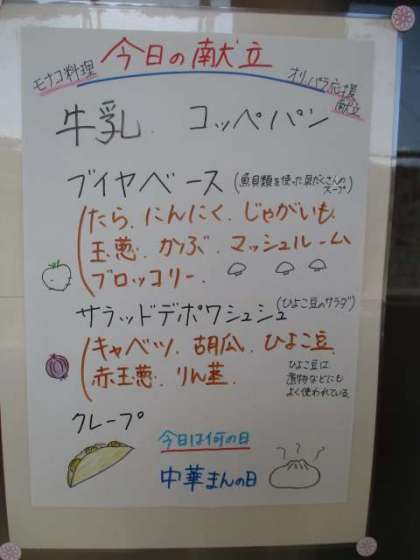 今日の献立
モナコ料理
オリパラ応援
献立
牛乳. コッペパン
ブイヤベース(魚貝類を使った具だくさんの
スープ)
たら、にんにく、じゃがいも、
玉葱、かぶ、マッシュルーム
ブロッコリー
サラッドデポワシュシュ(ひよこ豆のサラダ)
キャベツ、胡瓜、ひよこ豆
赤玉葱、りん茎
ひよこ豆は
煮物などにも
よく使われている。
クレープ
今日は何の日
中華まんの日